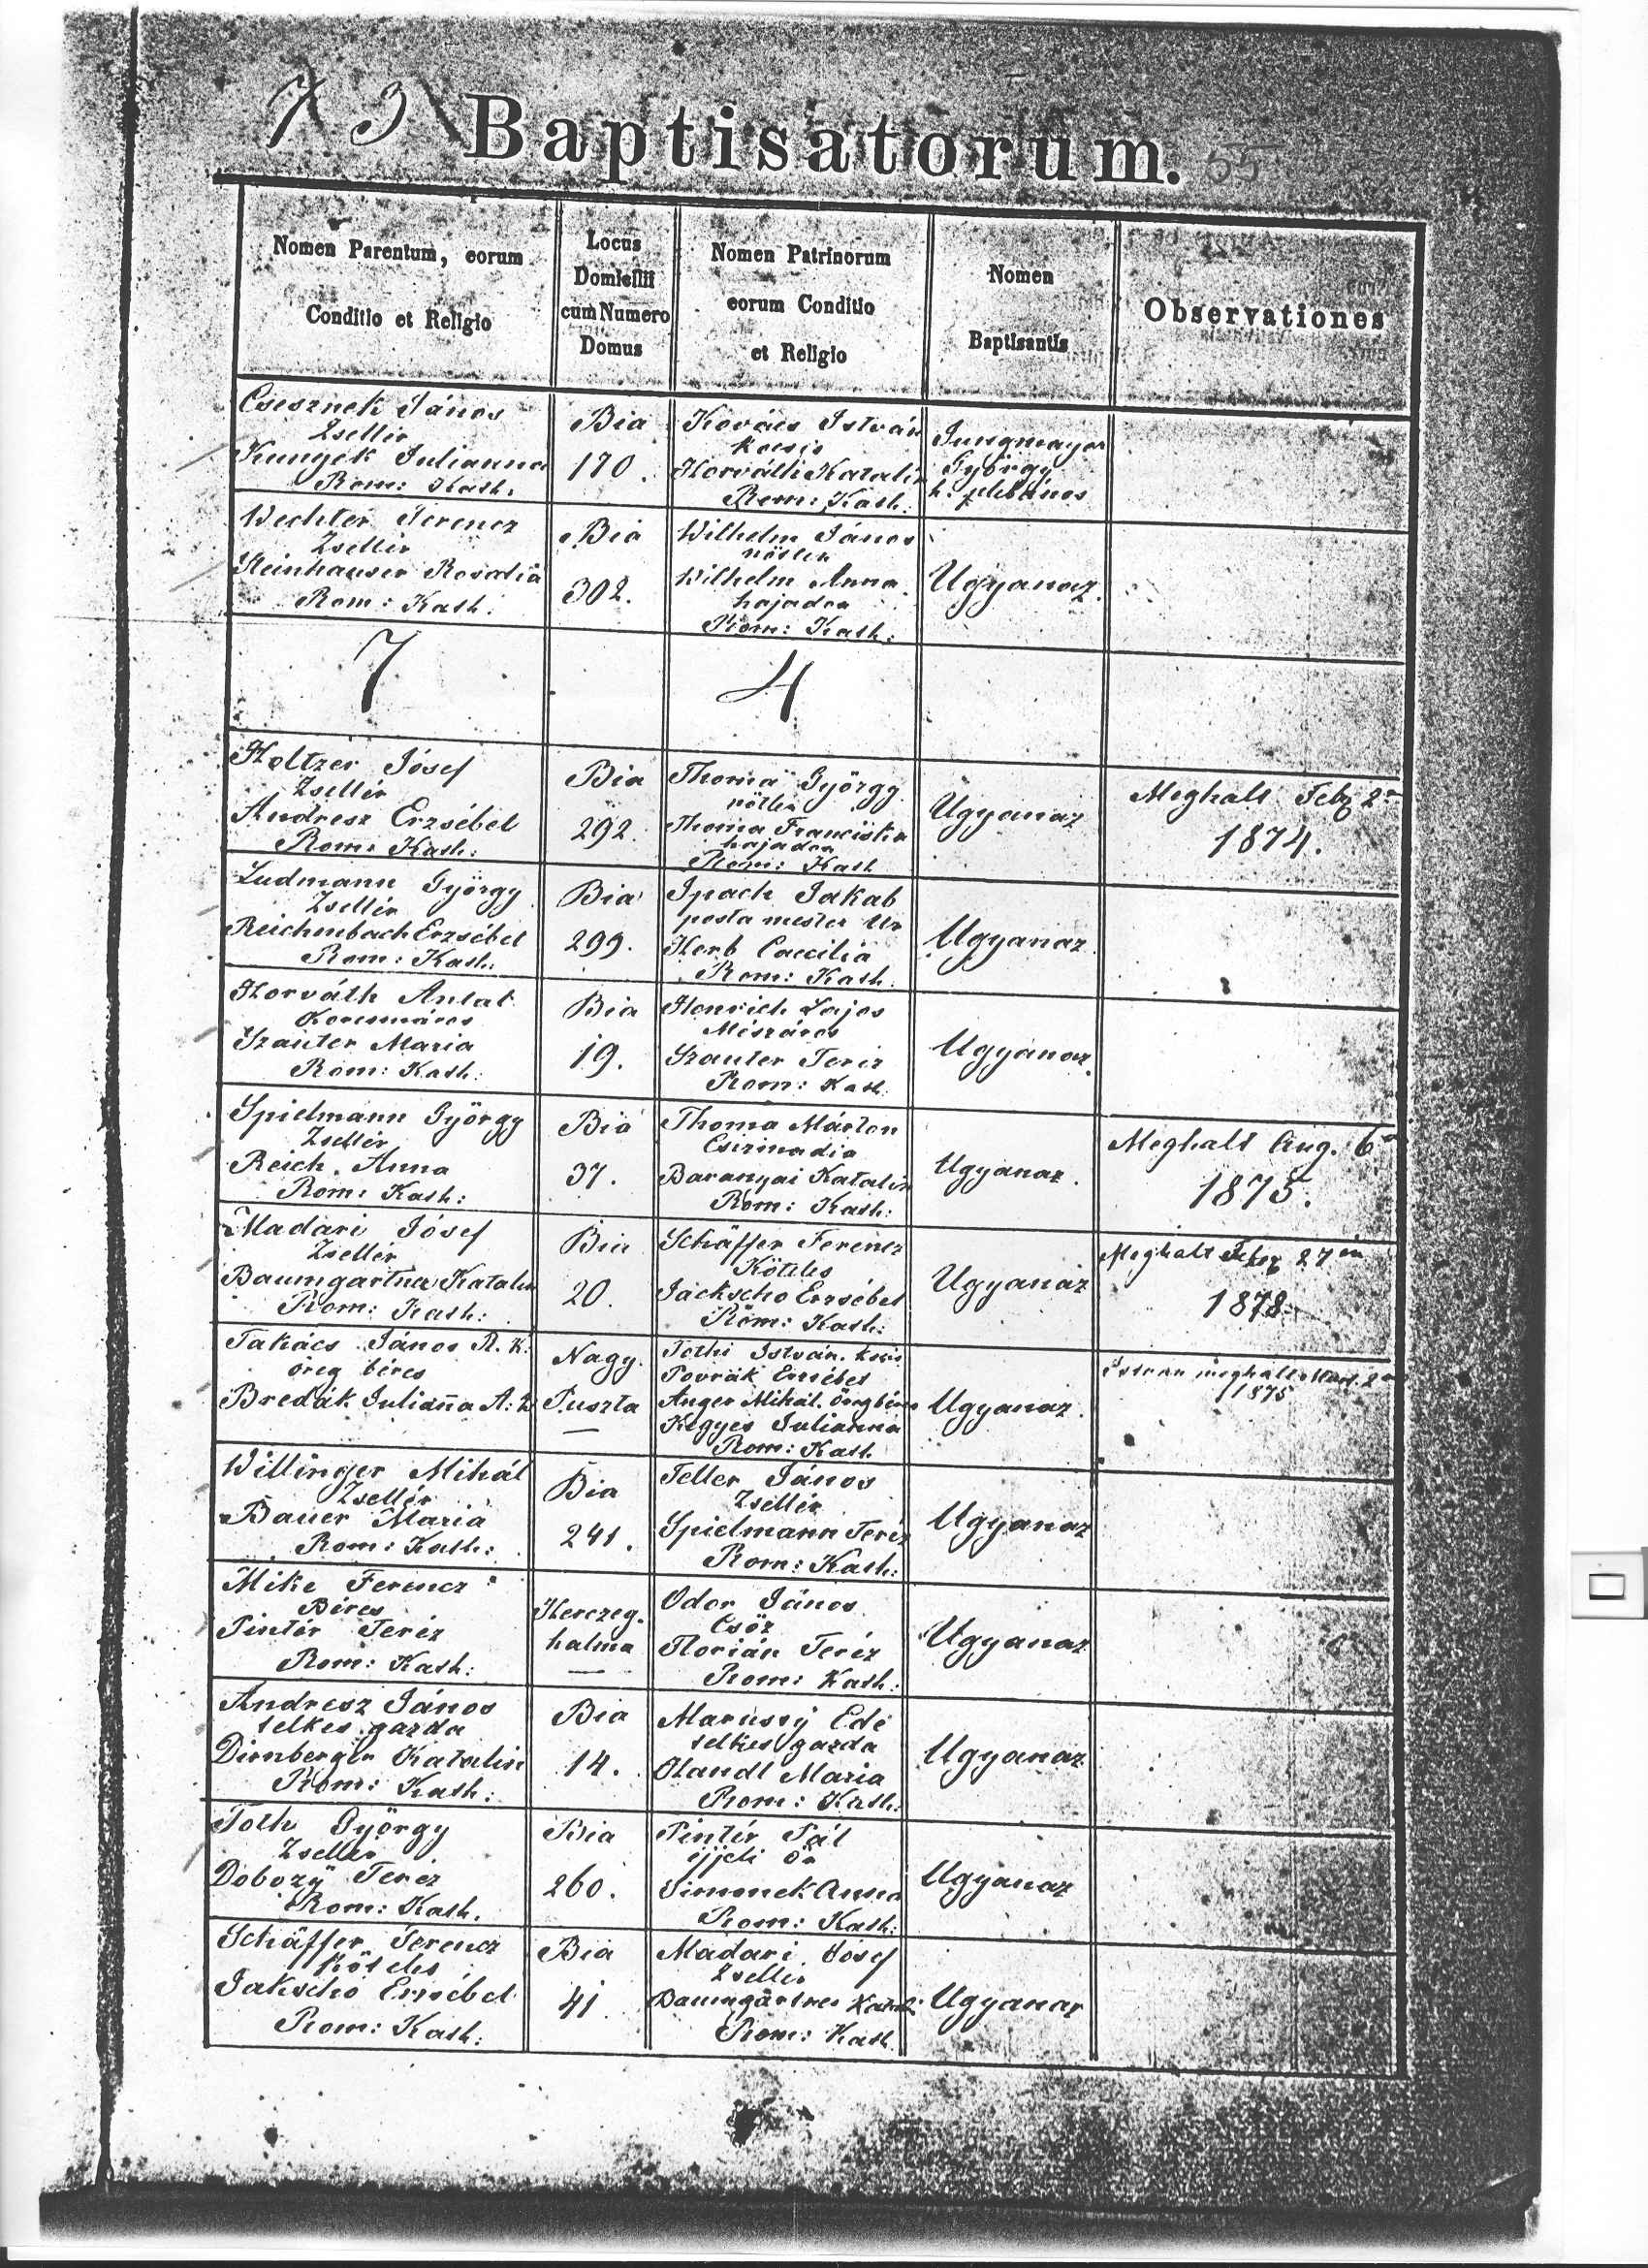 73 Baptisatorum. 55
Nomen Parentum, eorum
Conditio et Religio
Locus
Domicilii
cum Numero
Domus
Nomen Patrinorum
eorum Conditio
et Religio
Nomen
Baptisantis
Observationes
Csesznek János
Zsellér
Kungek Julianna
Rom: Kath.
Bia
170.
Kovács István
kocsis
Horváth Katalin
Rom: Kath.
Jungmayer
György
h: plébános
Wechter Ferencz
Zsellér
Steinhauser Rosalia
Rom: Kath.
Bia
302.
Wilhelm János
nőtlen
Wilhelm Anna
hajadon
Rom: Kath:
Ugyanaz.
7 4
Holtzer Jósef
Zsellér
Andresz Erzsébet
Rom: Kath:
Bia
292.
Thoma György
nőtlen
Thoma Franciska
hajadon
Rom: Kath
Ugyanaz
Meghalt Feb 2
1874.
Ludmann György
Zsellér
Reichenbach Erzsébet
Rom: Kath:
Bia
299.
Ipach Jakab
posta mester Ur
Herb Caecilia
Rom: Kath.
Ugyanaz
Horváth Antal
Korcsmáros
Szauter Maria
Rom: Kath:
Bia
19.
Henrich Lajos
Mészáros
Szauter Teréz
Rom: Kath
Ugyanaz.
Spielmann György
Zsellér
Reich Anna
Rom: Kath:
Bia
37.
Thoma Márton
Csizmadia
Baranyai Katalin
Rom: Kath:
Ugyanaz.
Meghalt Aug. 6
1875.
Madari Jósef
Zsellér
Baumgartner Katalin
Rom: Kath:
Bia
20.
Schäffer Ferencz
Köteles
Jackscho Erzsébet
Rom: Kath:
Ugyanaz
Meghalt Febr 27 én
1878
Takács János R. K.
öreg béres
Bredák Julianna A:
Nagy
Puszta
—
Tóthi István
Erzsébet
Anger Mihál. Öregbéres
Kegyes Julianna
Rom: Kath.
Ugyanaz.
István meghalt
1875
Willinger Mihál
Zsellér
Bauer Maria
Rom: Kath:
Bia
241.
Teller János
Zsellér
Spielmann Teréz
Rom: Kath:
Ugyanaz
Mike Ferencz
Béres
Pintér Teréz
Rom: Kath:
Herczeg-
halma
—
Odor János
Csősz
Florián Teréz
Rom: Kath:
Ugyanaz
Andresz János
telkes gazda
Dirnberger Katalin
Rom: Kath:
Bia
14.
Marussy Ede
telkes gazda
Handl Maria
Rom: Kath:
Ugyanaz
Toth György
Zsellér
Dobozÿ Teréz
Rom: Kath.
Bia
260.
Pintér Pál
éjjeli őr
Simonek Anna
Rom: Kath:
Ugyanaz
Schäffer Ferencz
Köteles
Jakscho Erzsébet
Rom: Kath:
Bia
41
Madari Jósef
Zsellér
Baumgärtner
Rom: Kath
Ugyanaz